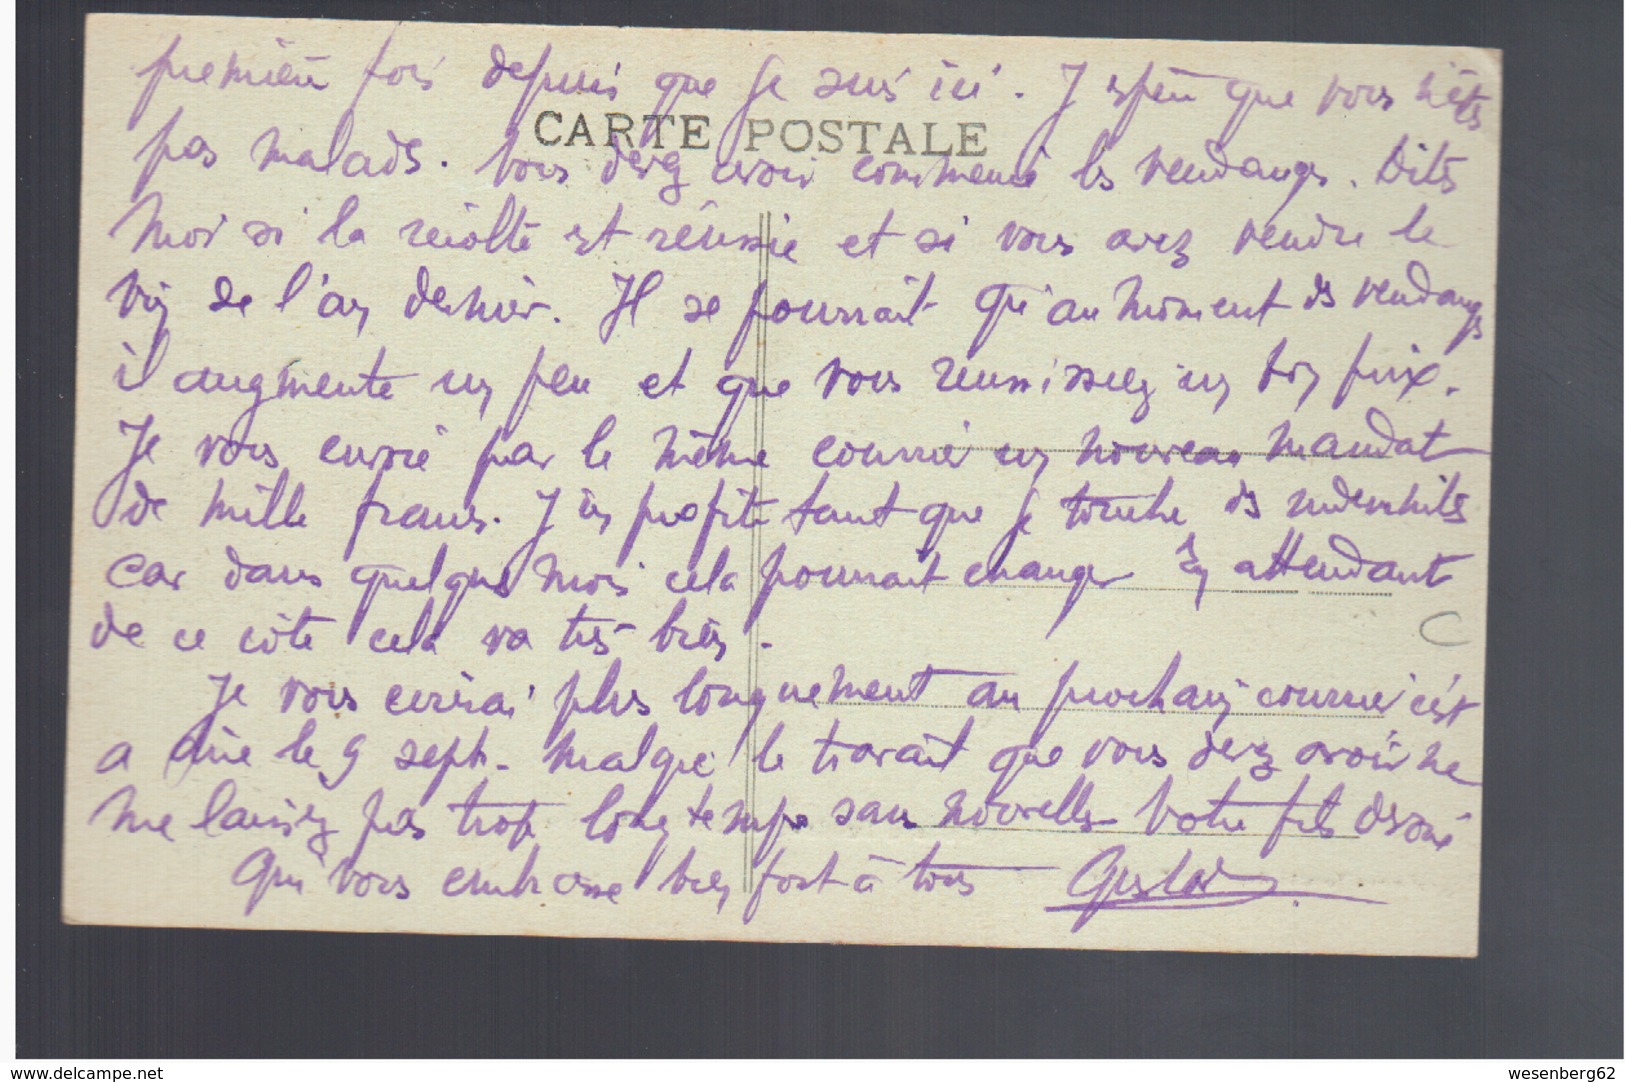 première fois depuis que je suis ici. J'espère que vous n'êtes
CARTE POSTALE
pas malade. Vous devez avoir commencé les vendanges. Dites
moi si la récolte est réussie et si vous avez vendre le
vin de l'an dernier. Il se pourrait qu'au moment des vendanges
il augmente un peu et que vous reussissiez un bon prix.
Je vous envoie par le même courrier un nouveau mandat
de mille francs. J'en profite tant que je touche des indemnités
car dans quelques mois cela pourrait changer En attendant
de ce côté cela va très bien.
Je vous ecrirai plus longuement au prochain courrier c'est
a dire le 9 sept. Malgré le travail que vous devez avoir ne
me laissez pas trop longtemps sans nouvelles Votre fils dévoué
Qui vous embrasse bien fort à tous Gustave
www.delcampe.net
wesenberg62